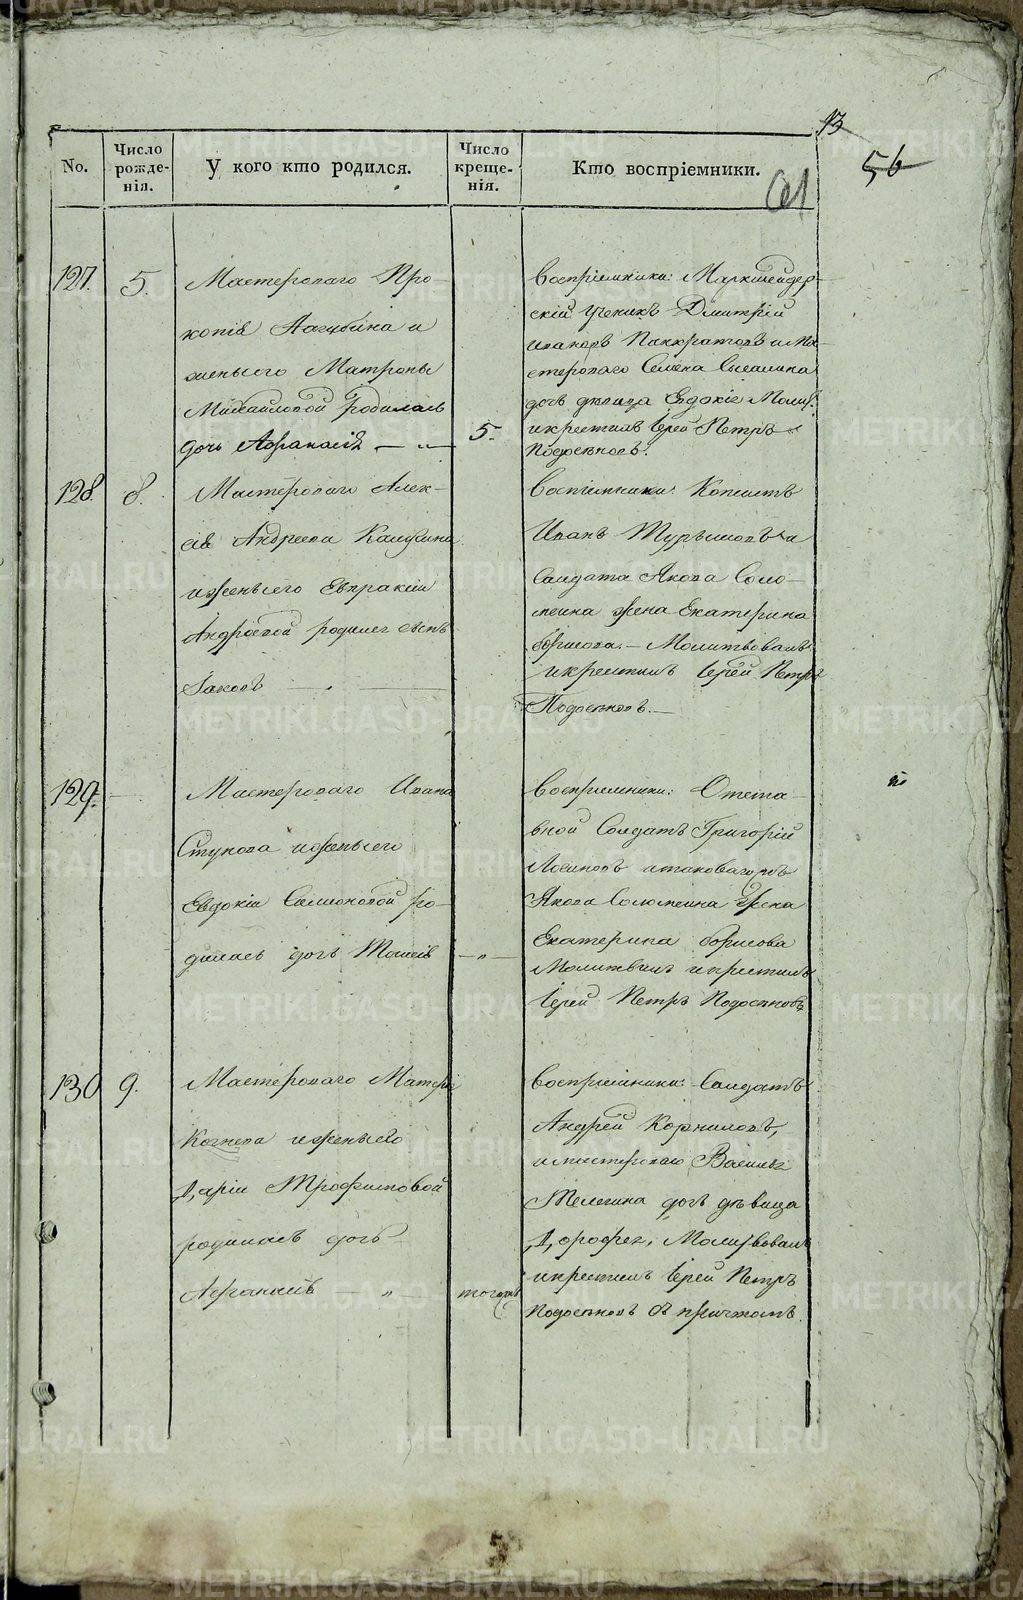 13
56
No.
Число рожде-
нія.
У кого кто родился.
Число креще-
нія.
Кто воспріемники.
61
127.
5.
Мастероваго Про-
копія Лагубина и
женыего Матроны
Михайловой родилась
дочь Афанасія
5.
Воспріемники: Маркшейдер-
скій ученикъ Дмитрій
Ивановъ Панкратовъ и Ма-
стероваго Семена
дочь девица Евдокія Молит.
икрестилъ Іерей Петръ
Подосеновъ.
128.
8.
Мастероваго Алек-
сія Андреева
иженыего Евпраксіи
Андреевой родился сынъ
Іаковъ
Воспіемники: Копеистъ
Иванъ и
Солдата Якова Соло-
меина жена Екатерина
Борисова. — Молитвовалъ
икрестилъ Іерей Петръ
Подосеновъ. —
129.
Мастероваго Ивана
Стукова иженыего
Евдокіи Симоновой ро-
дилась дочь Таисія
— „ —
Воспріемники: Отста-
вной Солдатъ Григорій
Логиновъ
Якова Соломеина жена
Екатерина борисова
икрестилъ
Іерей Петръ Подосеновъ
130
9.
Мастероваго
иженыего
Даріи Трофимовой
родилась дочь
Афанасія — „ —
Воспріемники: Солдатъ
Андрей Корниловъ,
имастероваго Василья
Телегина дочь девица
Дорофея, Молитвовалъ
икрестилъ Іерей Петръ
Подосеновъ съ причтомъ.
METRIKI.GASO-URAL.RU